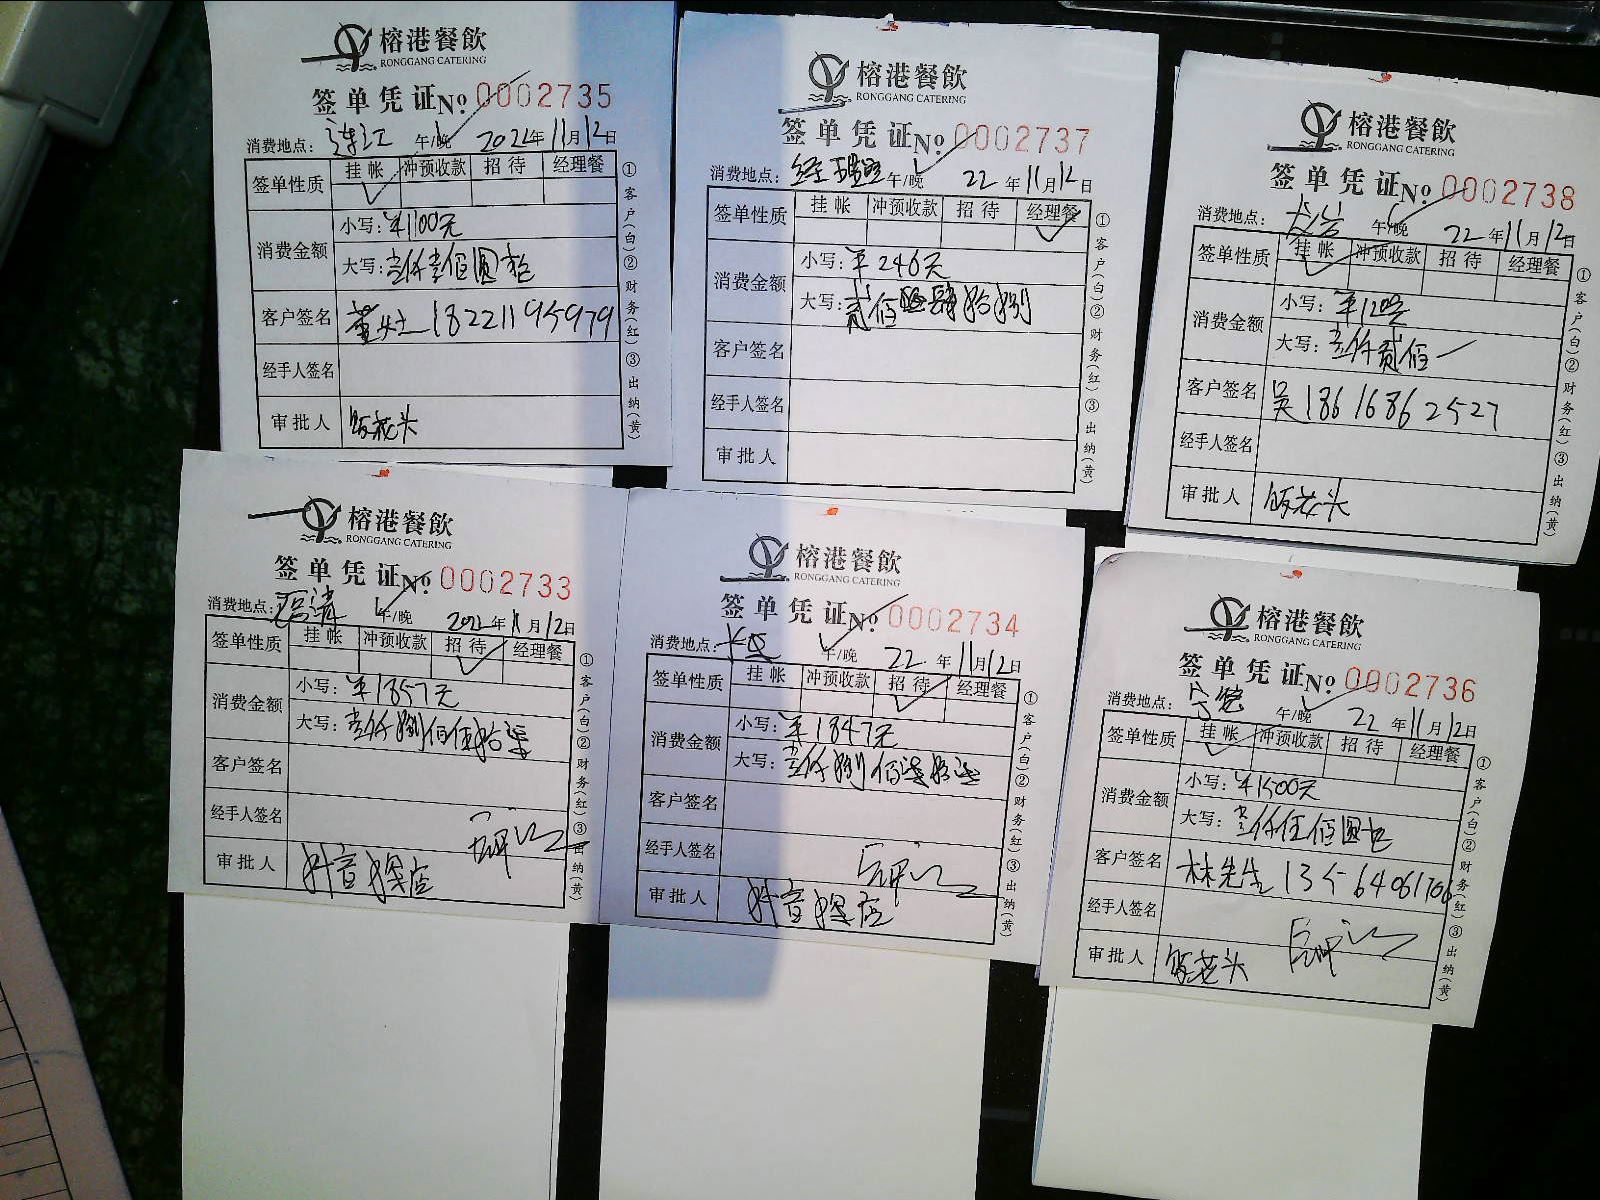 榕港餐飲
RONGGANG CATERING
签单凭证 No 0002735
消费地点: 连江 午/晚 2022年11月12日
签单性质 挂帐 冲预收款 招待 经理餐
消费金额 小写: ¥1100元
大写: 壹仟壹佰圆
客户签名 董女士 18221195979
经手人签名
审批人
①客户(白)②财务(红)③出纳(黄)
榕港餐飲
RONGGANG CATERING
签单凭证 No 0002737
消费地点: 午/晚 22年11月12日
签单性质 挂帐 冲预收款 招待 经理餐
消费金额 小写: ¥246元
大写: 贰佰肆拾
客户签名
经手人签名
审批人
①客户(白)②财务(红)③出纳(黄)
榕港餐飲
RONGGANG CATERING
签单凭证 No 0002738
消费地点: 午/晚 22年11月12日
签单性质 挂帐 冲预收款 招待 经理餐
消费金额 小写:
大写: 壹仟贰佰
客户签名 吴 18616862527
经手人签名
审批人
①客户(白)②财务(红)③出纳(黄)
榕港餐飲
RONGGANG CATERING
签单凭证 No 0002733
消费地点: 午/晚 2022年11月12日
签单性质 挂帐 冲预收款 招待 经理餐
消费金额 小写: ¥1857元
大写: 壹仟捌佰伍拾柒
客户签名
经手人签名
审批人 抖音探店
①客户(白)②财务(红)③出纳(黄)
榕港餐飲
RONGGANG CATERING
签单凭证 No 0002734
消费地点: 午/晚 22年11月12日
签单性质 挂帐 冲预收款 招待 经理餐
消费金额 小写: ¥1847元
大写: 壹仟捌佰
客户签名
经手人签名
审批人 抖音探店
①客户(白)②财务(红)③出纳(黄)
榕港餐飲
RONGGANG CATERING
签单凭证 No 0002736
消费地点: 午/晚 22年11月12日
签单性质 挂帐 冲预收款 招待 经理餐
消费金额 小写: ¥1500元
大写: 壹仟伍佰圆
客户签名 林先生 13564061706
经手人签名
审批人
①客户(白)②财务(红)③出纳(黄)